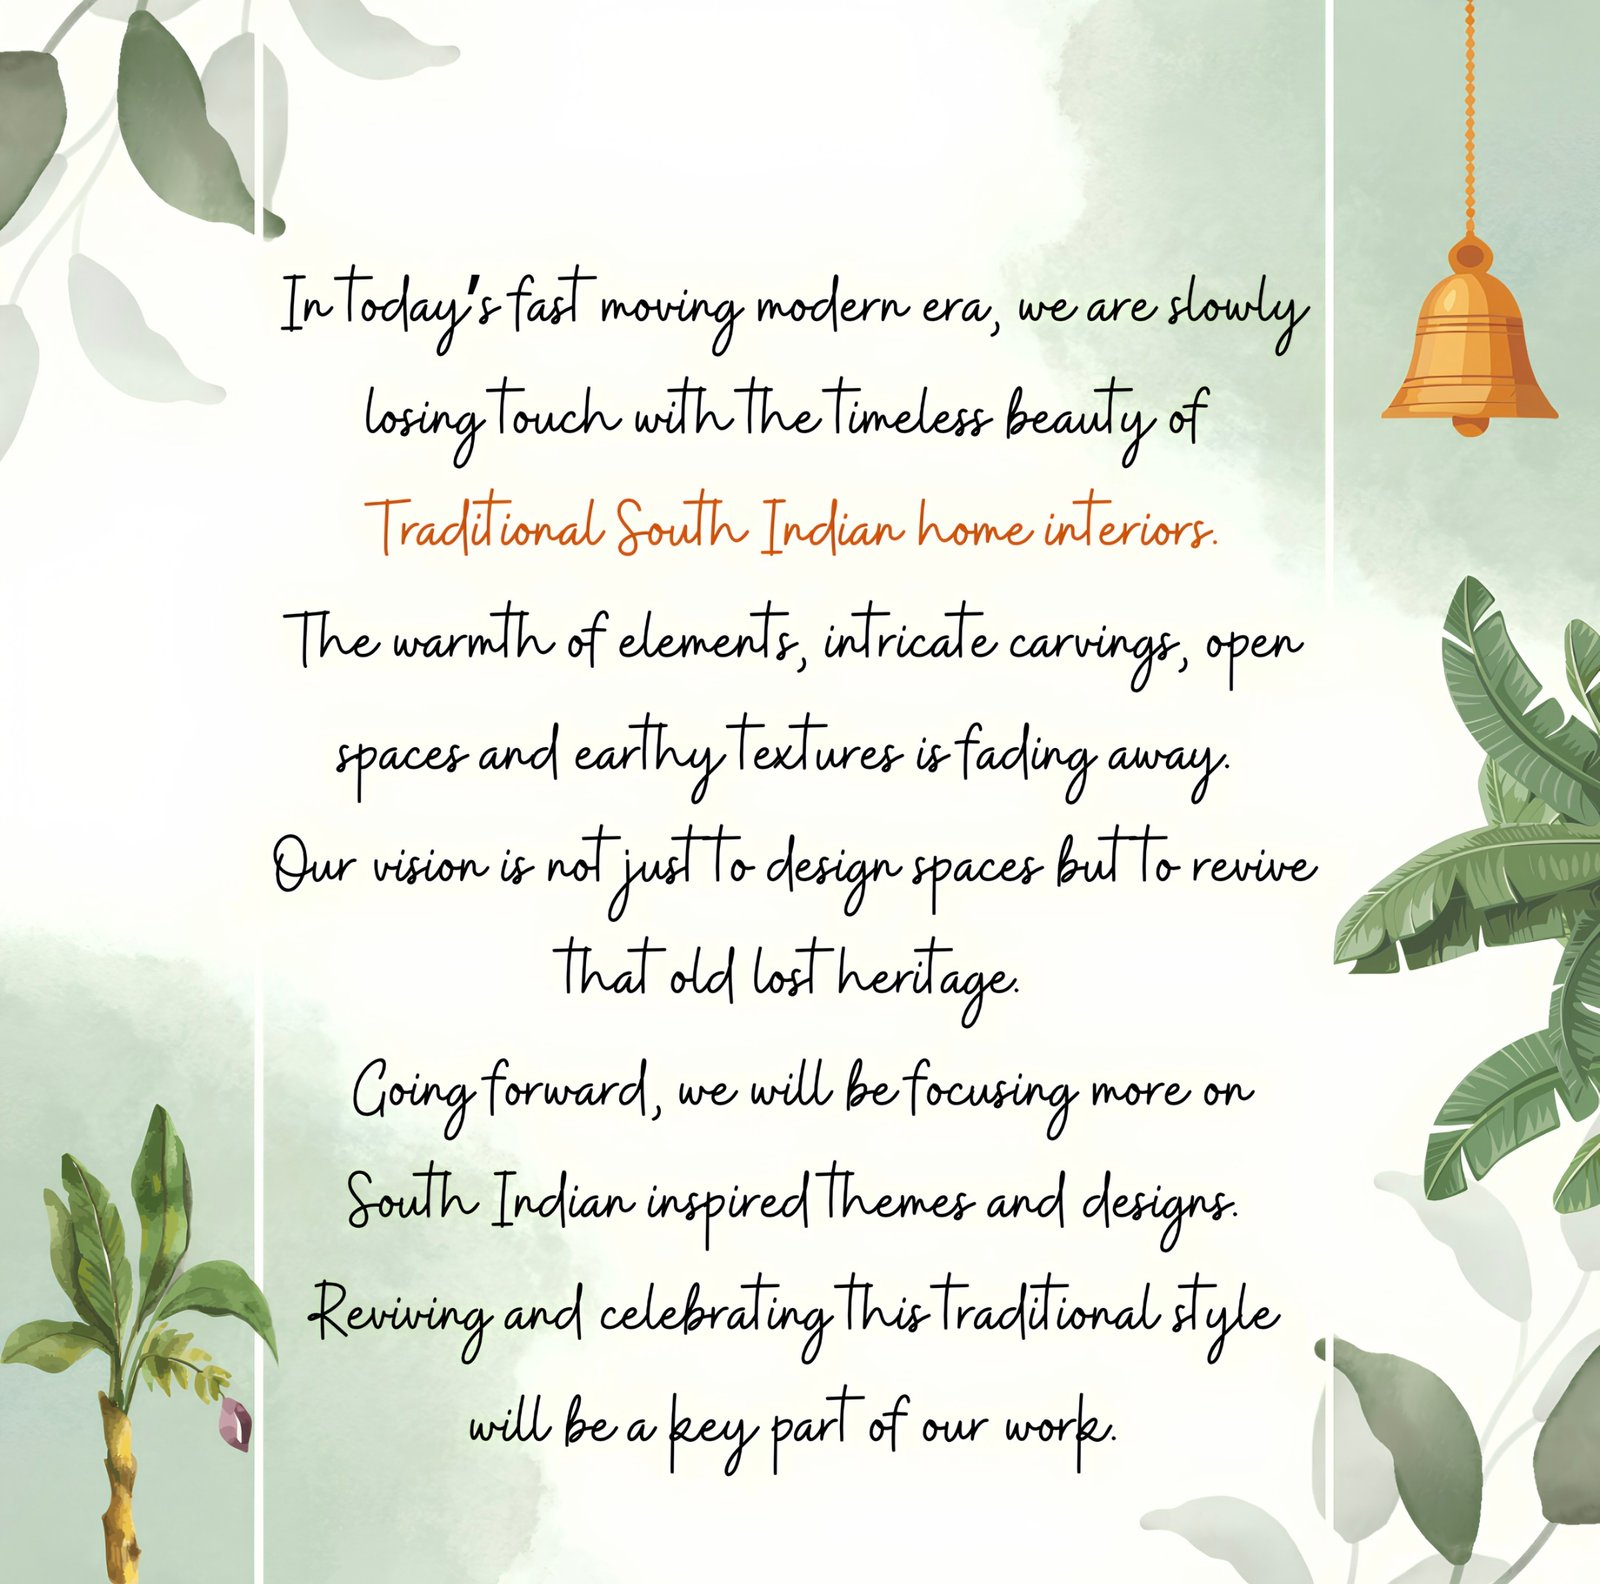 In today's fast moving modern era, we are slowly
losing touch with the timeless beauty of
Traditional South Indian home interiors.
The warmth of elements, intricate carvings, open
spaces and earthy textures is fading away.
Our vision is not just to design spaces but to revive
that old lost heritage.
Going forward, we will be focusing more on
South Indian inspired themes and designs.
Reviving and celebrating this traditional style
will be a key part of our work.